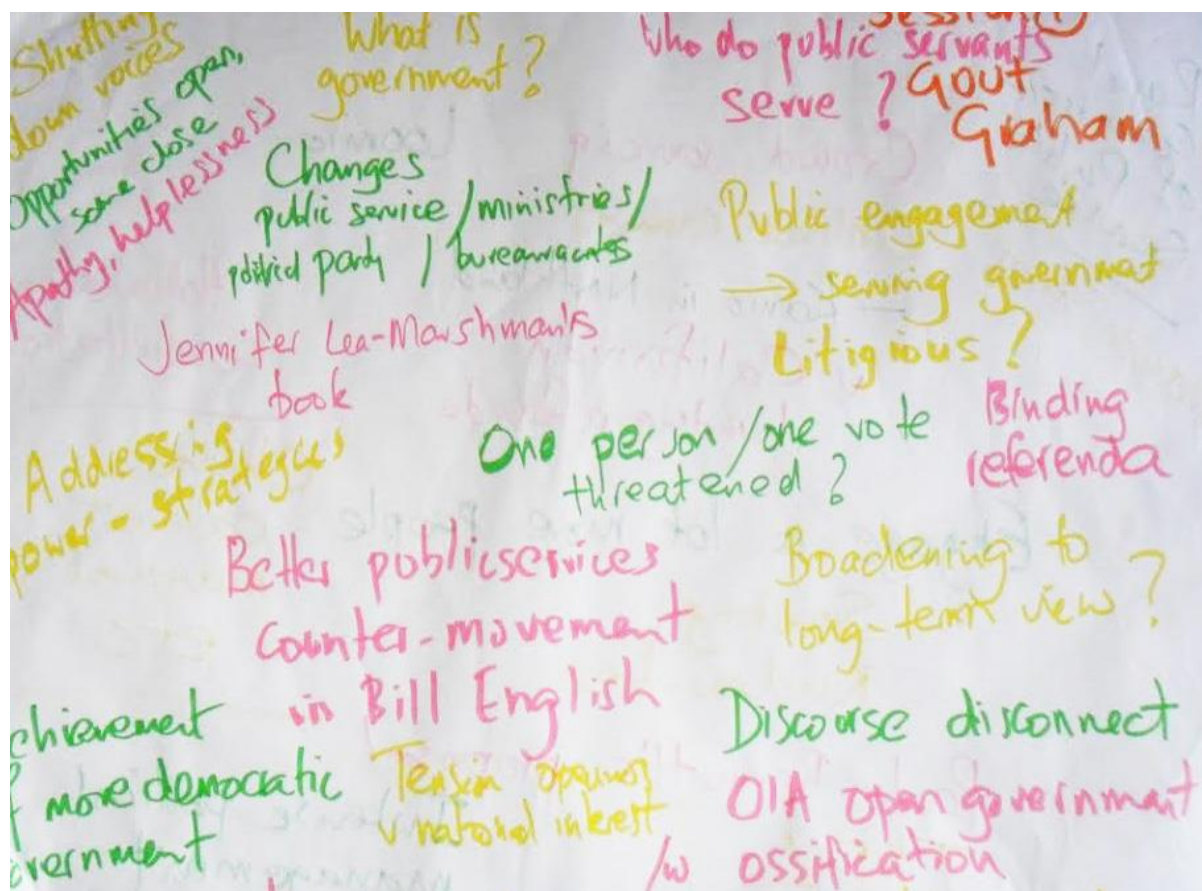 Shutting
down voices
Opportunities open,
some close
Apathy, helplessness
What is
government?
Who do public servants
serve?
Session 1
Gout
Graham
Changes
public service/ministries/
political party / bureaucrats
Public engagement
→ serving government
Litigious?
Jennifer Lea-Marshman's
book
Addressing
power - strategies
One person/one vote
threatened?
Binding
referenda
Better publicservices
counter-movement
in Bill English
Broadening to
long-term view?
chievement
f more democratic
vernment
Tension openness
v national interest
Discourse disconnect
OIA open government
/w ossification